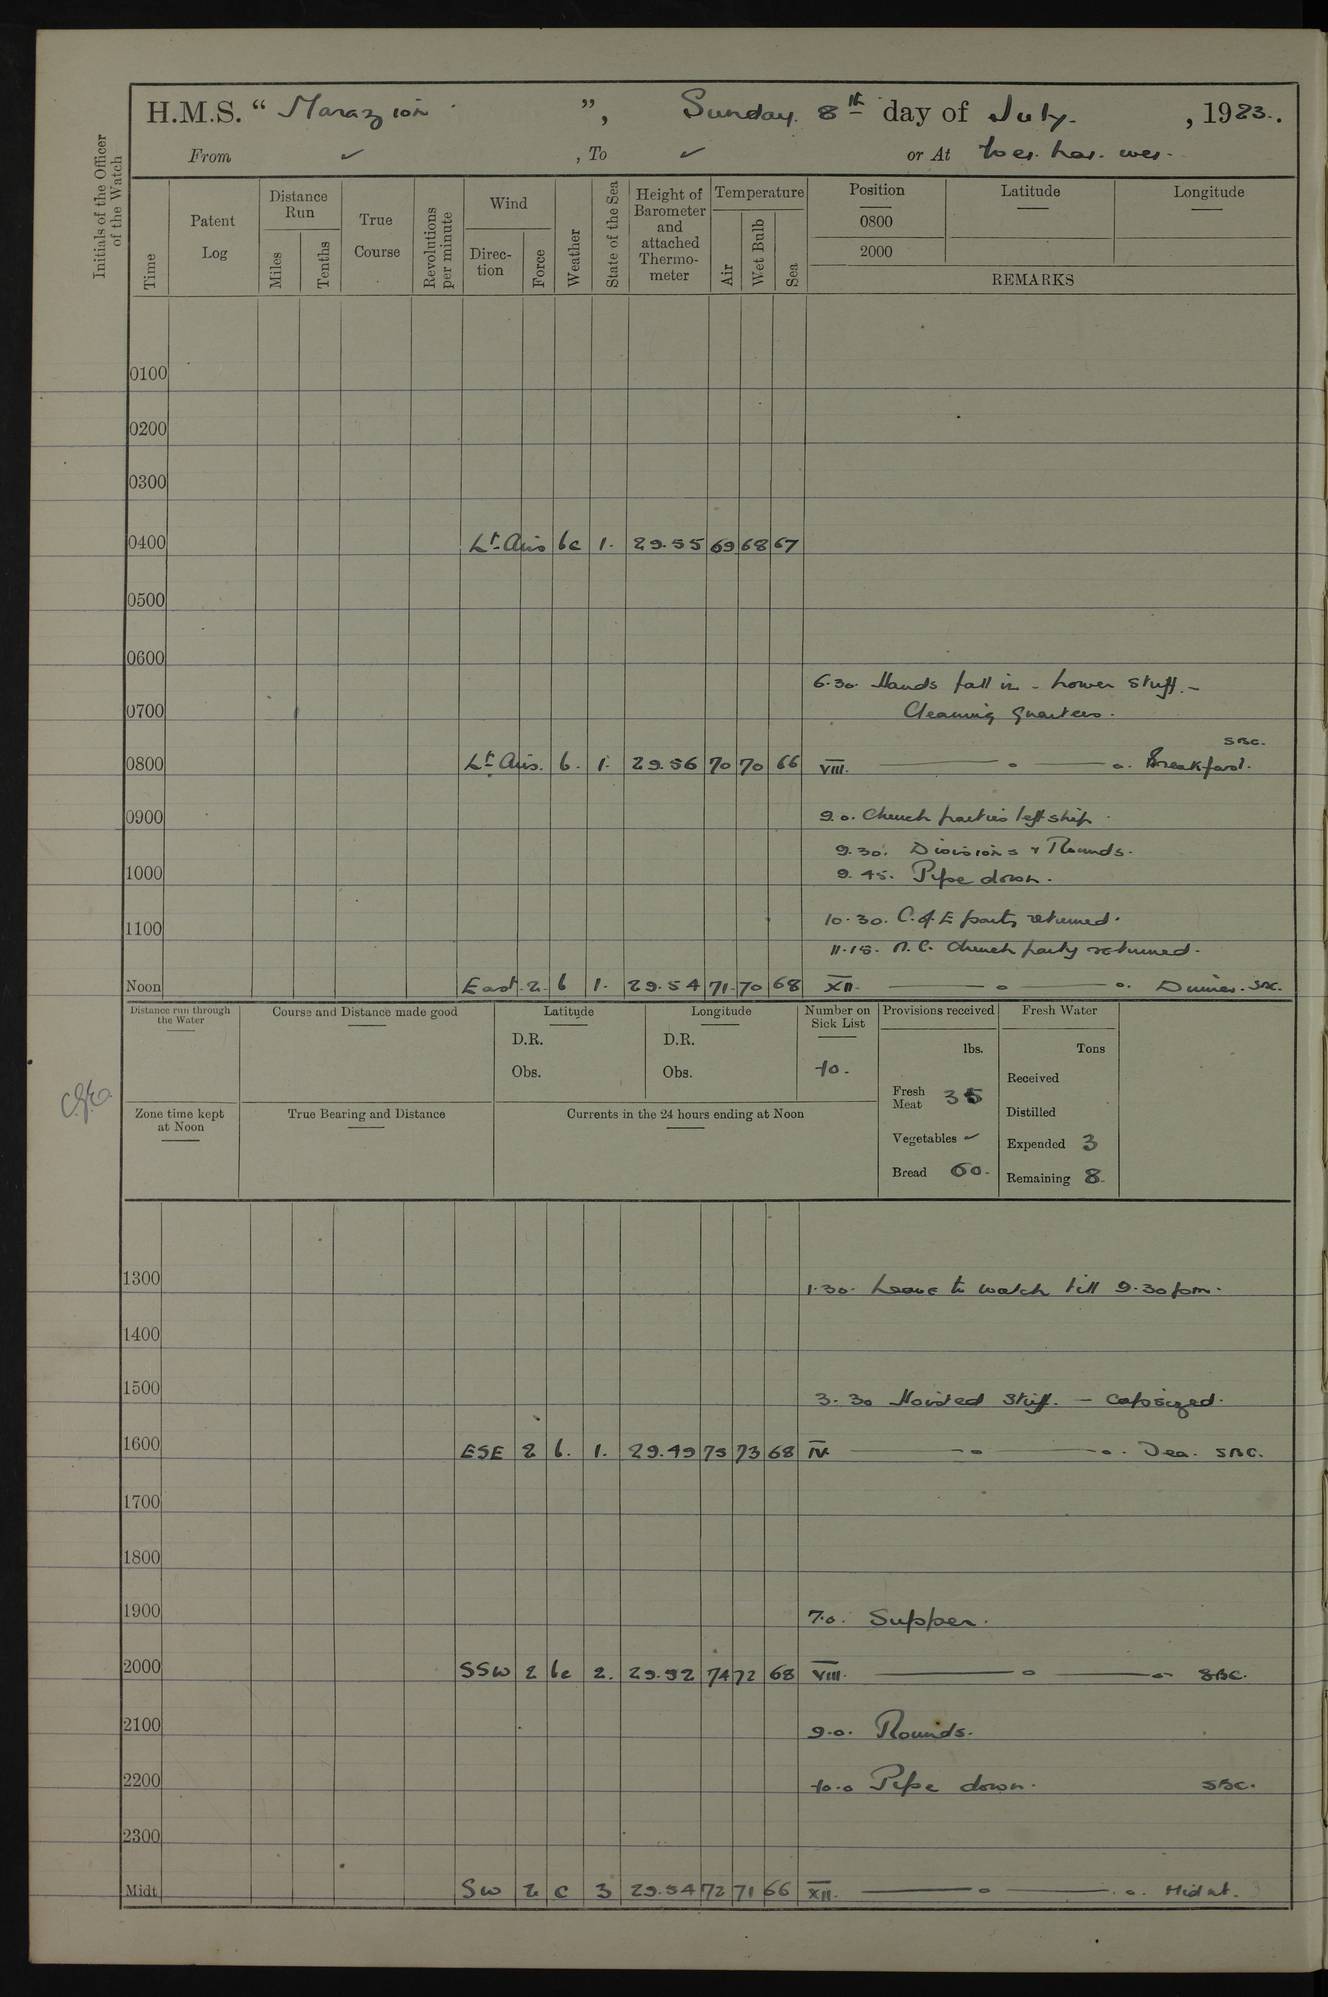 H.M.S. “ Marazion ”, Sunday. 8th day of July. , 1923.
From ✓ , To ✓ or At
Initials of the Officer of the Watch
Time
Patent Log
Distance Run
Miles
Tenths
True Course
Revolutions per minute
Wind
Direction
Force
Weather
State of the Sea
Height of Barometer and attached Thermometer
Temperature
Air
Wet Bulb
Sea
Position Latitude Longitude
0800
2000
REMARKS
0100
0200
0300
0400 Lt. Airs bc 1. 29.55 69 68 67
0500
0600
6.30. Hands fall in - Lower stuff. -
0700 Cleaning quarters.
SBC.
0800 Lt. Airs. b. 1. 29.56 70 70 66 VIII. Breakfast.
0900 9.0. Church parties left ship.
9.30. Divisions & Rounds.
1000 9.45. Pipe down.
10.30. C. of E party returned.
1100
11.15. R.C. Church party returned.
Noon East. 2. b 1. 29.54 71. 70 68 XII. Dinner. SBC.
Distance run through the Water
Course and Distance made good
Latitude
D.R.
Obs.
Longitude
D.R.
Obs.
Number on Sick List
10.
Provisions received
lbs.
Fresh Meat 35
Vegetables ✓
Bread 60.
Fresh Water
Tons
Received
Distilled
Expended 3
Remaining 8.
Zone time kept at Noon
True Bearing and Distance
Currents in the 24 hours ending at Noon
1300 1.30. Leave to watch till 9.30 pm.
1400
1500 3.30 Hoisted Stuff. - Capsized.
1600 ESE 2 b. 1. 29.49 75 73 68 IV. Tea. SBC.
1700
1800
1900 7.0. Supper.
2000 SSW 2 bc 2. 29.52 74 72 68 VIII. SBC.
2100 9.0. Rounds.
2200 10.0 Pipe down. SBC.
2300
Midt. SW 2 c 3 29.54 72 71 66 XII. Midnt.